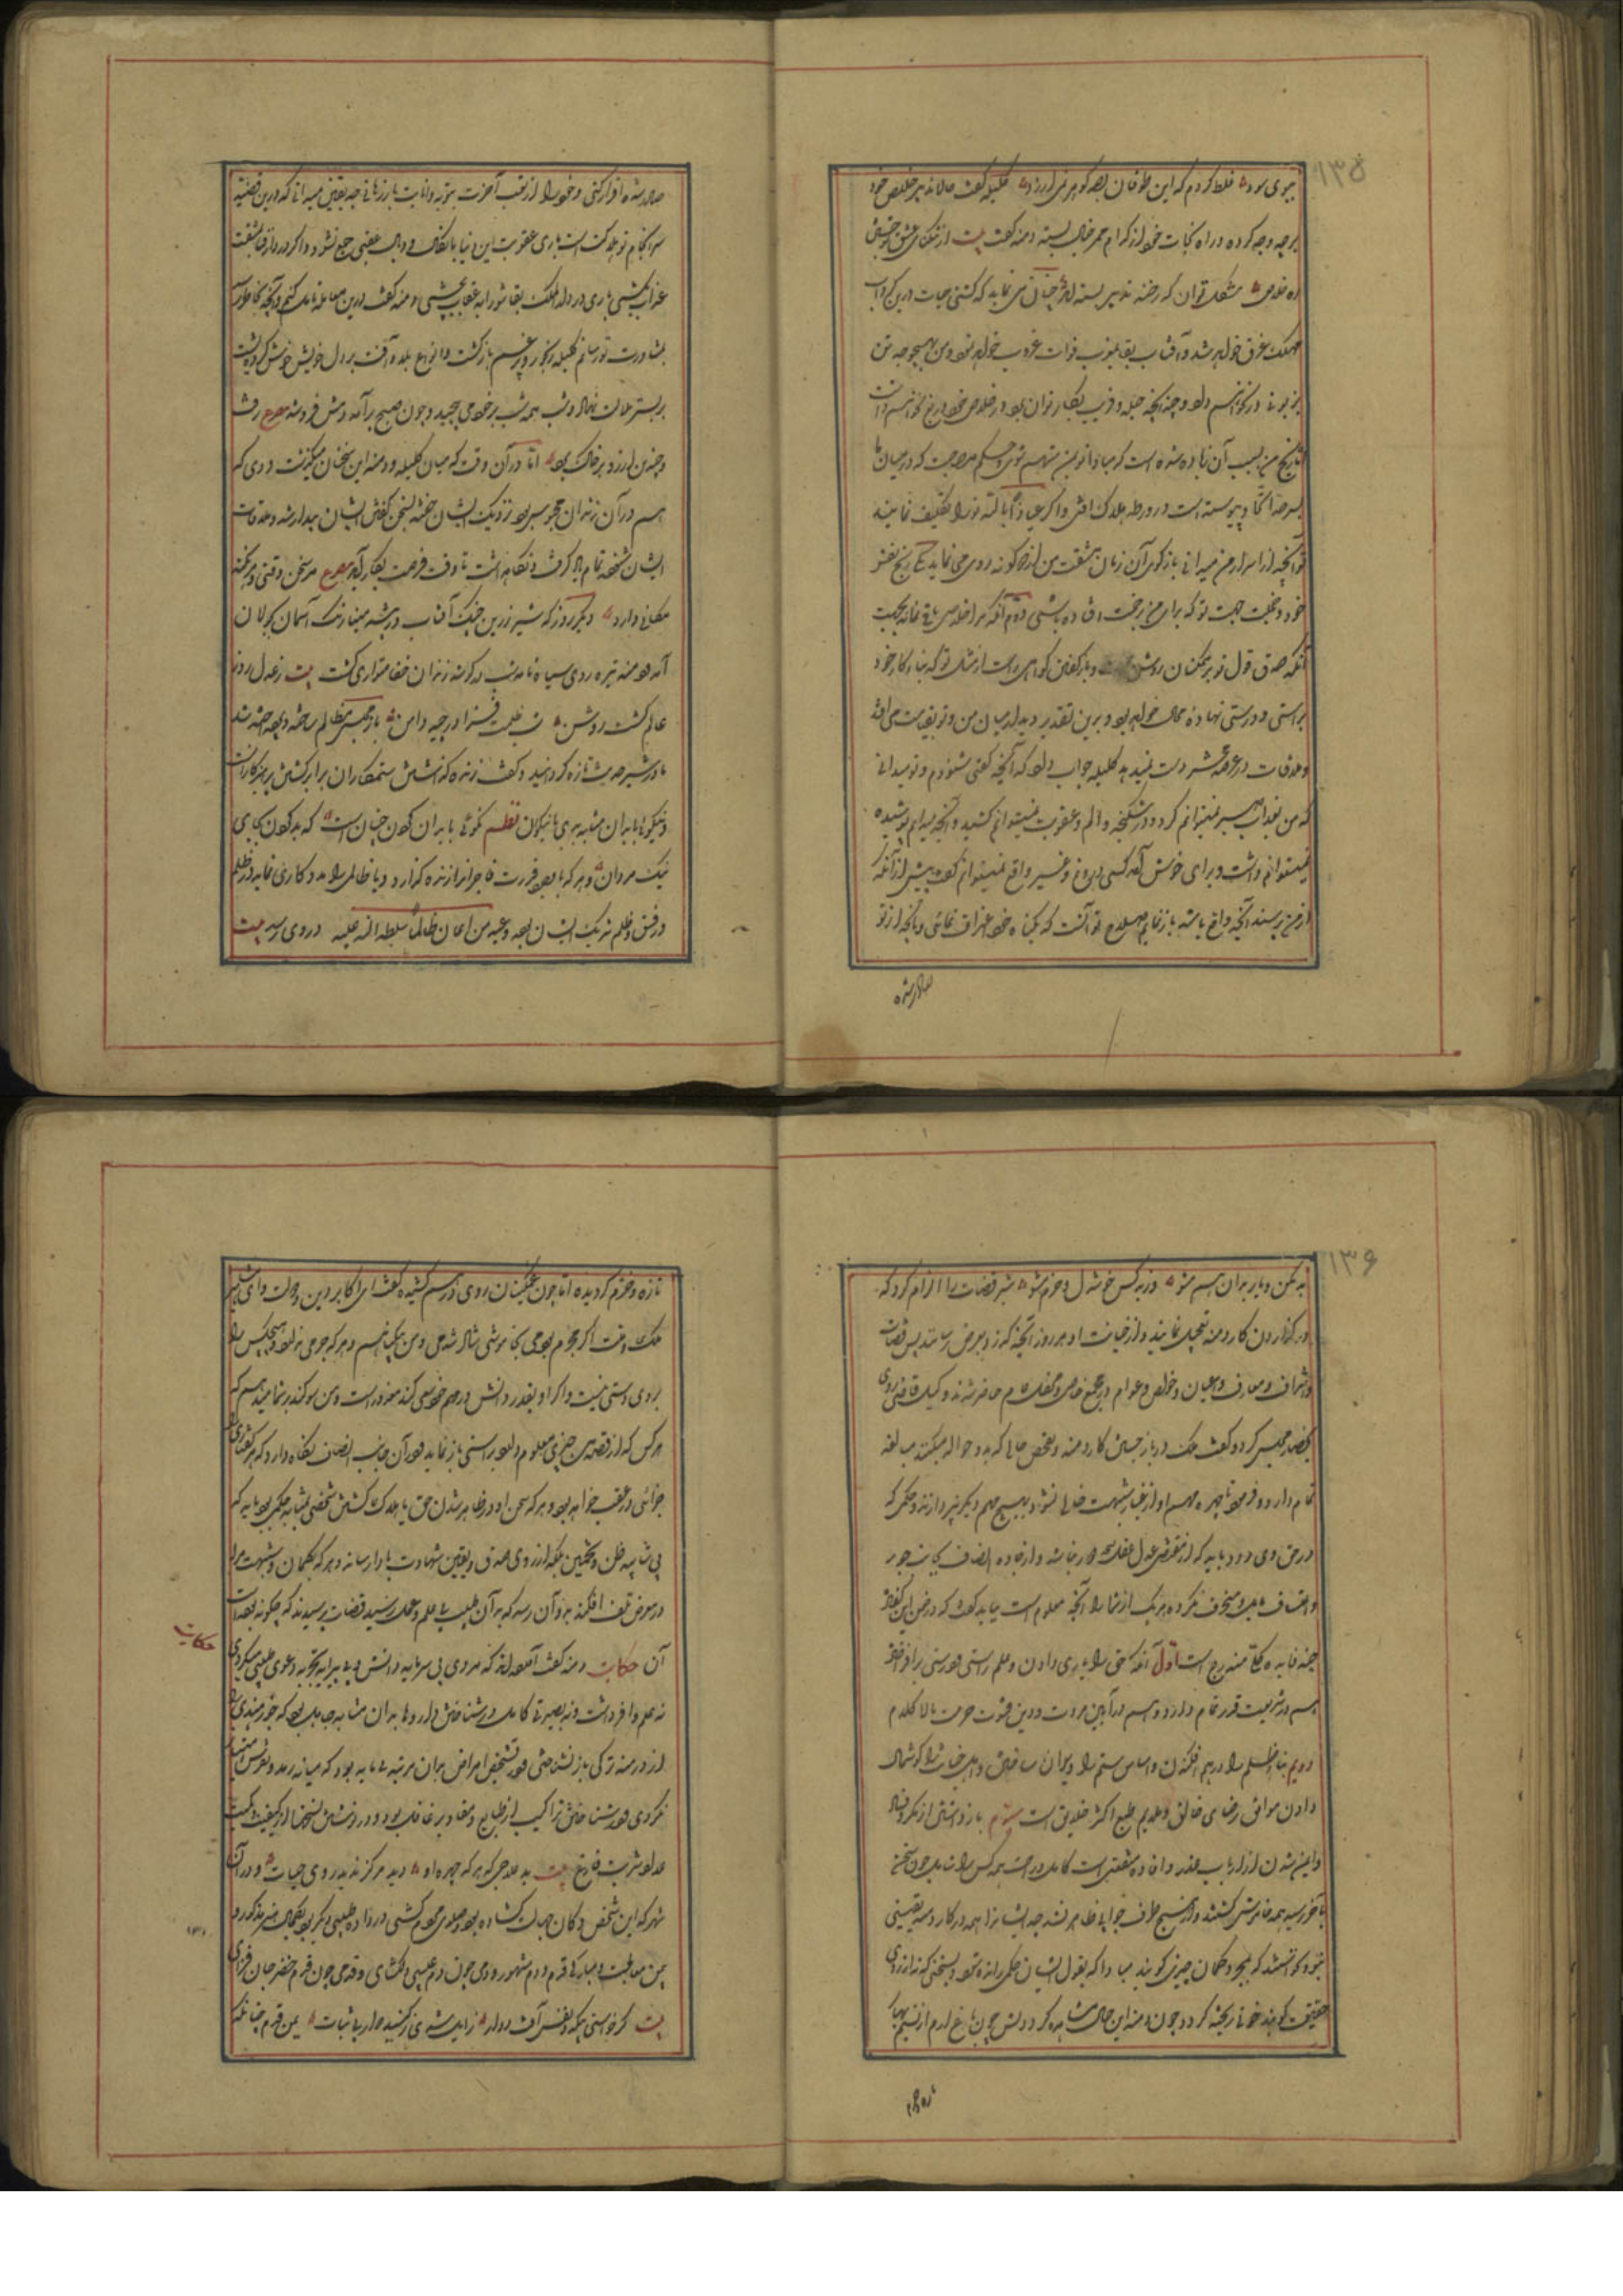 ۱۳۵
بوی سود غلط کردم که این طوفان بصد گوهر نمی ارزد کلیله گفت حالا تدبیر خلیص خود
بر چه وجه کرده و راه نجات خود از کدام ممر خیال بسته دمنه گفت بیت از تنگنای عشق
ره خلاص مشکل توان که رخنه تدبیر بسته اند چنان می نماید که کشتی حیات درین گرداب
مهلک غرق خواهد شد و آفتاب بقا بمغرب فوات غروب خواهد نمود و من بهیچوجه تن
بزبونی در نخواهم داد و چندانکه حیله و فریب بکار توان برد در خلاص خود دریغ نخواهم داشت
و رنج من بسبب آن زیاده شده است که مبادا تو بمن متهم شوی بحکم مصاحبت که در میان ما
بسرحد اتحاد پیوسته است در ورطه هلاک افتی و اگر عیاذا بالله تو را تکلیف نمایند
تو آنچه از اسرار من میدانی بازگوی آن زمان مشقت من از دو گونه روی می نماید یکی رنج نفس
خود و خجلت جهت تو که برای من برنجت افتاده باشی دوم آنکه مرا خلاصی باقی نماند بجهت
آنکه صدق قول تو بر همگنان روشن و بازگفتن گواهی راست از مثل تو که بناء کار خود
براستی و درستی نهاده محال خواهد بود و برین تقدیر دیدار میان من و تو بقیامت می افتد
و ملاقات در عرصه محشر دست میدهد کلیله جواب داد که آنچه گفتی شنودم و تو میدانی
که من بعذاب صبر نمیتوانم کرد و در شکنجه و الم و عقوبت نمیتوانم کشید و آنچه میدانم پوشیده
نمیتوانم داشت و برای خوش آمد کسی دروغ و غیر واقع نمیتوانم گفت پیش از آنکه
از من پرسند آنچه واقع باشد باز نمایم صلاح تو آنست که بگناه خود اعتراف نمائی و بآنچه از تو
صادر شده
صادر شده اقرار کنی و خود را از تعب آخرت بتوبه و انابت باز رهانی چه بیقین میدانی که درین قضیه
سرانجام تو هلاکت است باری عقوبت این دنیا با نکال و وبال عقبی جمع نشود و اگر در دار فنا مشقت
عذاب کشی باری در دار الملک بقا شور ابه عقاب نچشی دمنه گفت درین معامله تامل کنم و آنچه بخاطر رسد
بمشاورت تو رسانم کلیله رنجور و پر غم بازگشت و انواع بلا و آفت بر دل خویش خوش کرده پشت
بر بستر ملالت نهاد و شب همه شب بر خود می پیچید و چون صبح برآمد دمش فرو شد مصرع رفت
و چندین آرزو بر خاک برد اما در آن وقت که میان کلیله و دمنه این سخنان میگذشت ددی که
هم در آن زندان محبوس بود نزدیک ایشان خفته بسخن گفتن ایشان بیدار شد و ملاقات
ایشان شنفته تمام یاد گرفت و نگاه داشت تا وقت فرصت بکار آید مصرع هر سخن وقتی و هر نکته
مکانی دارد دیگر روز که شیر زرین چنگ آفتاب در بیشه مینارنگ آسمان بجولان
آمد و دمنه تیره روی سیاه نامه شب در گوشه زندان خفا متواری گشت بیت ز عدل روز
عالم گشت روشن شب ظلمت فزا در چید دامن باز مجلس مظالم ساخته و بحجره شد
مادر شیر حدیث تازه گردانید و گفت زنده گذاشتن ستمکاران برابر کشتن پرهیزکاران است
و نیکوئی با بدان بمثابه بدی با نیکوان نظم نکوئی با بدان کردن چنان است که بد کردن بجای
نیک مردان و هر که با وجود قدرت فاجر انرا زنده گذارد و یا ظالم را مددکاری نماید در ظلم
و فسق و ظلم شریک ایشان بود و وعید من اعان ظالما سلطه الله علیه در وی رسد بیت
۱۳۶
بد مکن و یار بدان هم مشو وز بد کس خوشدل و خرم مشو شیر قضات را الزام کرد که
در گذاردن کار دمنه تعجیل نمایند و از خیانت او هر روز آنچه گذرد بعرض رسانند پس قضات
و اشراف و معارف و اعیان و خواص و عوام در مجمع خاص و محفل عام حاضر شدند وکیل قاضی روی
بحضار مجلس کرد و گفت ملک در باز جستن کار دمنه و تفحص حالی که بدو حواله میکنند مبالغه
تمام دارد و فرموده تا چهره مهم او از غبار شبهت خالی نشود بهیچ مهم دیگر نپردازند و حکمی که
در حق وی رود باید که از مقتضی عدل عقل دور نباشد و از جاده انصاف بجانب جور
و اعتساف میل و منحرف نگردد هر یک از شما را آنچه معلوم است بباید گفت که در ضمن این گفتار
چند فایده کلی مندرج است اول آنکه حق را یاری دادن و علم راستی و درستی برافراختن
هم در شریعت قدر تمام دارد و هم در آیین مروت و دین فتوت حرمت بالا کلام
دویم بنا ظلم را در هم افکندن و اساس ستم را ویران ساختن و اهل خیانت را گوشمال
دادن موافق رضای خالق و ملایم طبع اکثر خلایق است سیم باز داشتن از مکر و فساد
و ایمن شدن از ارباب غدر و افساد منفعتی است کامل و راحت همه کس را شامل چون سخن
بآخر رسید همه خاموش گشتند و از هیچ طرف جوابی ظاهر نشد چه ایشانرا همه در کار دمنه یقینی
نبود نخواستند که بمجرد گمان چیزی گویند مبادا که بقول ایشان حکمی رانده شود و بسخنی که نه از روی
حقیقت گویند خونی ریخته گردد چون دمنه این حال مشاهده کرد دلش چون باغ ارم از نسیم بهار
تازه و خرم
تازه و خرم گردیده اما چون غمگینان روی در هم کشیده گفت ای اکابر دین و دولت و ای مشاهیر
ملک و ملت اگر مجرم بودمی بخاموشی شما شاد شدمی و من بیگناهم و هر که جرمی ندارد هیچکس را
بر وی دستی نیست و اگر او بقدر دانش در مهم خود سعی کند معذور است و من سوگند بر شما میدهم که
هر کس که از قصه من چیزی معلوم دارد براستی باز نماید و در آن جانب انصاف نگاه دارد که هر گفتاری را
جزائی در عقب خواهد بود و هر که سخن او در ظاهر شدن حق یا هلاک کشتن شخصی بمثابه حکم بود باید که
بی شایبه ظن و تخمین بلکه از روی صدق و یقین شهادت بادا رساند و هر که بگمان و شبهت مرا
در معرض تلف افکند بدو آن رسد که به آن طبیب بی علم و عمل رسید قضات پرسیدند که چگونه بوده است
حکایت
آن حکایت دمنه گفت آورده اند که مردی بی سرمایه دانش و بی پیرایه تجربه دعوی طبیبی میکردی
نه علم وافر داشت و نه بصیرت کامل در شناختن داروها بدان مثابه جاهل بود که جوز هندی را
از درمنه ترکی باز نشناختی و در تشخیص امراض بدان مرتبه بی مایه بود که میان رمد و نقرس امتیاز
نکردی و در شناختن تراکیب از طبایع و مقادیر غافل بود و در نوشتن نسخها از کیفیت و کمیت
دارو شربت فارغ بیت بد علاجی که هر که چهره او دید هرگز ندید روی حیات و در آن
شهر که این شخص دکان جهل گشاده بود و صلای مردم کشی در داده طبیبی دیگر بود بکمال هنر مذکور و
یمن معالجت و مبارکی قدم و دم مشهور و دمی چون دم عیسی دلگشای و قدمی چون قدم خضر جان فزای
بیت گر خواستی بیکدم نفس آفت دوار زایل شدی ز گنبد دوار بی ثبات یمن قدم چنانکه